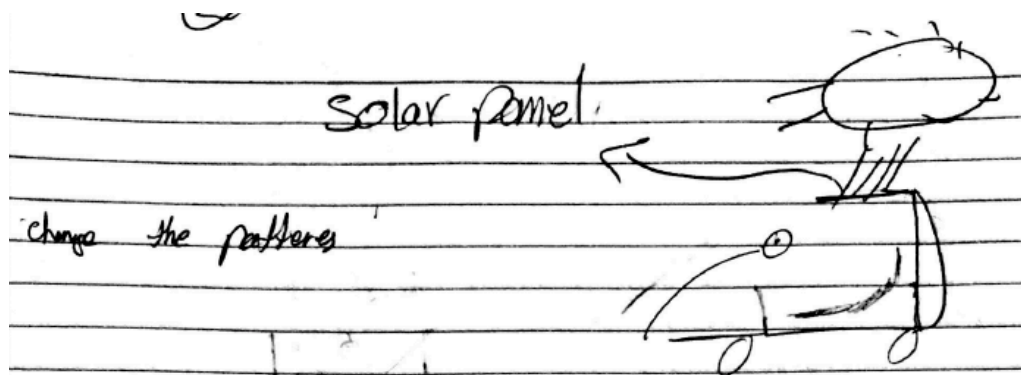 solar pamel.
change the patteres